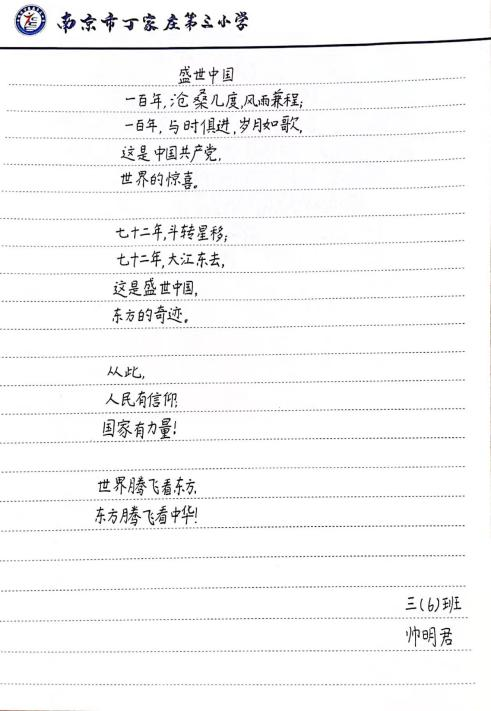 南京市丁家庄第三小学
盛世中国
一百年,沧桑几度,风雨兼程;
一百年,与时俱进,岁月如歌,
这是中国共产党,
世界的惊喜。
七十二年,斗转星移;
七十二年,大江东去,
这是盛世中国,
东方的奇迹。
从此,
人民有信仰!
国家有力量!
世界腾飞看东方,
东方腾飞看中华!
三(6)班
帅明君